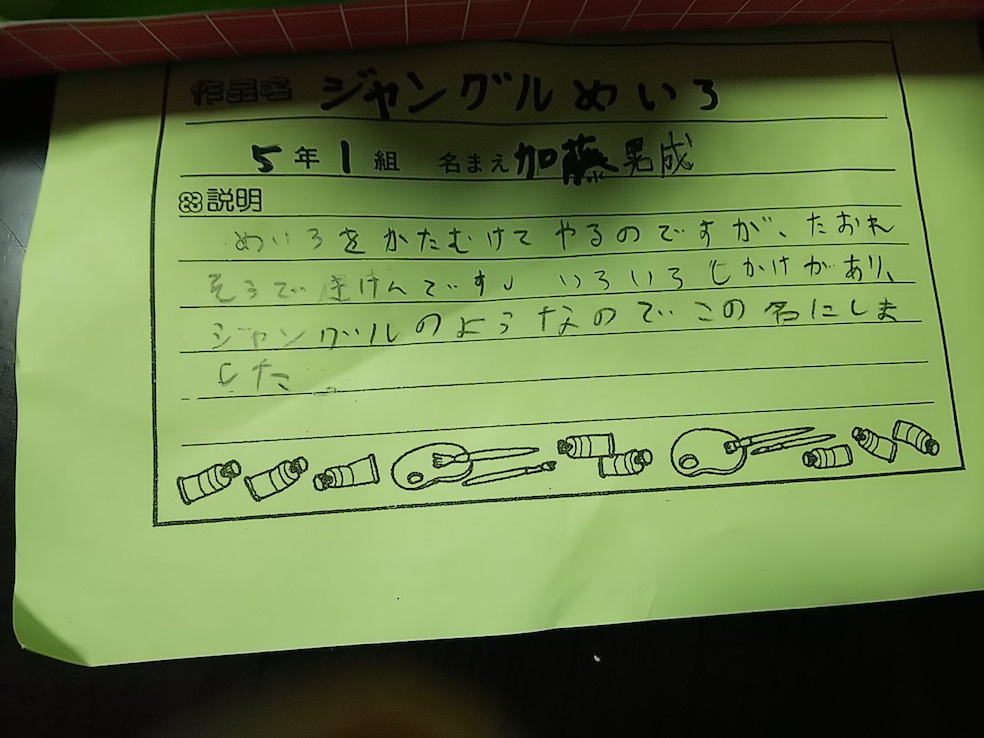 作品名 ジャングルめいろ
5年1組 名まえ加藤晃成
説明
めいろをかたむけてやるのですが、たおれ
そうできけんです。いろいろしかけがあり、
ジャングルのようなのでこの名にしま
した。